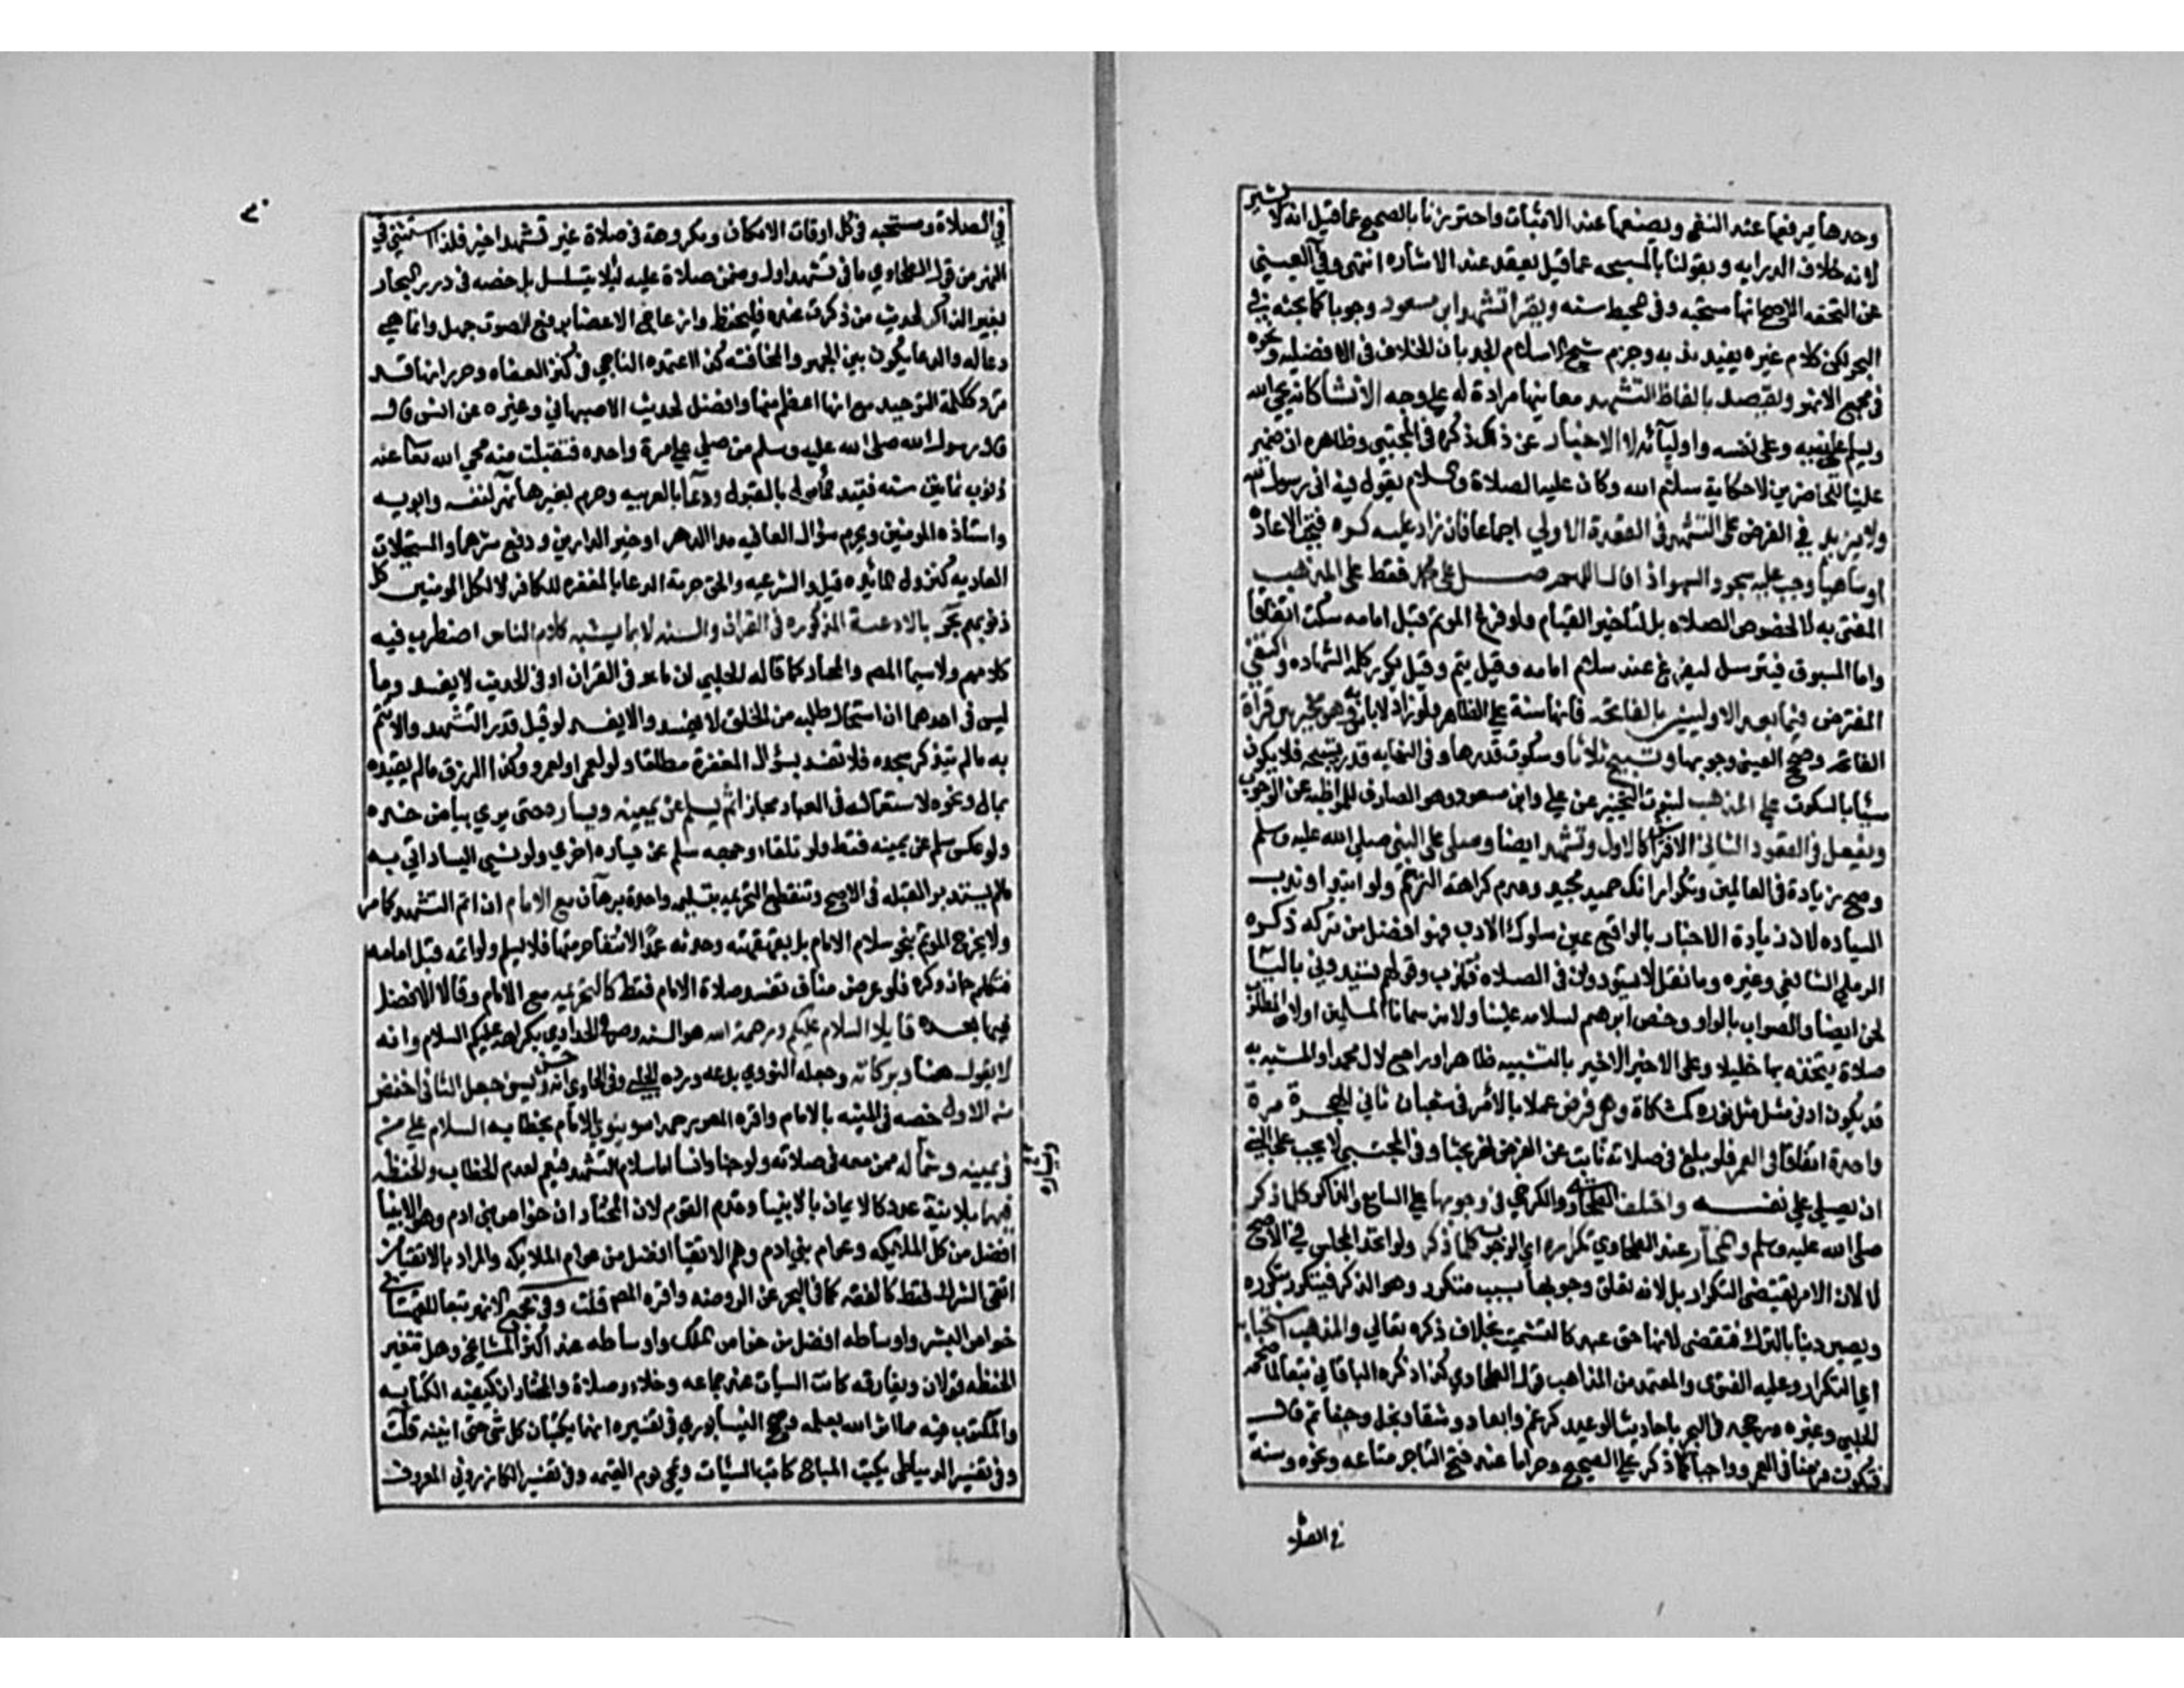 وحدها يرفعها عند النفي ويضعها عند الاثبات واحترزنا بالصحيح عما قيل انه لا يشير
لانه خلاف الدرايه وبقولنا بالمسبحه عما قيل يعقد عند الاشاره انتهى وفي العيني
عن التحفه الاصح انها مستحبه وفي المحيط سنه ويقرا تشهد ابن مسعود وجوبا كما بحثه في
البحر لكن كلام غيره يفيد ندبه وجزم شيخ الاسلام الجد بان الخلاف في الافضليه ونحوه
في مجمع الانهر ويقصد بالفاظ التشهد معانيها مرادة له على وجه الانشا كانه يحي الله
ويسلم على نبيه وعلى نفسه واوليائه لا الاخبار عن ذلك ذكره في المجتبي وظاهره ان ضمير
علينا للحاضرين لا حكاية سلام الله وكان عليه الصلاة والسلام يقول فيه اني رسول الله
ولا يزيد في الفرض على التشهد في القعدة الاولي اجماعا فان زاد عليه كره فتجب الاعاده
او ساهيا وجب عليه سجود السهو اذا قال اللهم صل على محمد فقط على المذهب
المفتى به لا لخصوص الصلاه بل لتاخير القيام ولو فرغ الموتم قبل امامه سكت اتفاقا
واما المسبوق فيترسل ليفرغ عند سلام امامه وقيل يتم وقيل يكرر كلمة الشهاده واكتفي
المفترض فيما بعد الاوليين بالفاتحه فانها سنة على الظاهر ولو زاد لا باس به وهو مخير بين قراة
الفاتحه وصحح العيني وجوبها وتسبيح ثلاثا وسكوت قدرها وفي النهايه قدر تسبيحه فلا يكون
مسيأ بالسكوت على المذهب لثبوت التخيير عن علي وابن مسعود وهو الصارف للمواظبه عن الوجوب
ويفعل في القعود الثاني الافتراش كالاول وتشهد ايضا وصلى على النبي صلى الله عليه وسلم
وصح زيادة في العالمين وتكرار انك حميد مجيد وعدم كراهة الترحم ولو ابتداء وندب
السياده لان زيادة الاخبار بالواقع عين سلوك الادب فهو افضل من تركه ذكره
الرملي الشافعي وغيره وما نقل لا تسودوني في الصلاه فكذب وقولهم تسيدوني بالياء
لحن ايضا والصواب بالواو وخص ابرهيم لسلامه علينا ولانه سمانا المسلمين او لان المطلوب
صلاة يتخذه بها خليلا وعلى الاخير الاخير بالتشبيه ظاهر او راجع لال محمد او المشبه به
قد يكون ادنى مثل مثل نوره كمشكاة وهي فرض عملا بالامر في شعبان ثاني الهجرة مرة
واحدة اتفاقا في العمر فلو بلغ في صلاته نابت عن الفرض نهر بحثا وفي المجتبي لا يجب على النبي
ان يصلي على نفسه واختلف الطحاوي والكرخي في وجوبها على السامع والذاكر كلما ذكر
صلى الله عليه وسلم والمختار عند الطحاوي تكراره اي الوجوب كلما ذكر ولو اتحد المجلس في الاصح
لا لان الامر يقتضي التكرار بل لانه تعلق وجوبها بسبب متكرر وهو الذكر فيتكرر بتكرره
ويصير دينا بالترك فتقضى لانها حق عبد كالتشميت بخلاف ذكره تعالي والمذهب استحبابه
اي التكرار وعليه الفتوى والمعتمد من المذاهب قول الطحاوي كذا ذكره الباقاني تبعا لما صححه
الحلبي وغيره ورجحه في البحر باحاديث الوعيد كرغم وابعاد وشقاء وبخل وجفا ثم قال
فتكون فرضا في العمر وواجبا كلما ذكر على الصحيح وحراما عند فتح التاجر متاعه ونحوه وسنة
في الصلاة
في الصلاة ومستحبه في كل اوقات الامكان ومكروهة في صلاة غير تشهد اخير فلذا استثني في
النهر من قول الطحاوي ما في تشهد اول وضمن صلاة عليه ليلا يتسلسل بل خصه في درر البحار
بغير الذاكر لحديث من ذكرت عنده فليحفظ وازعاج الاعضا برفع الصوت جهل وانما هي
دعا له والدعا يكون بين الجهر والمخافته كذا اعتمده الباجي في كنز العفاه وحرر انها قد
ترد ككلمة التوحيد مع انها اعظم منها وافضل لحديث الاصبهاني وغيره عن انس قال
قال رسول الله صلى الله عليه وسلم من صلى علي مرة واحده فتقبلت منه محي الله تعالى عنه
ذنوب ثمانين سنه فقيد المأمول بالقبول ودعا بالعربيه وحرم بغيرها نهر لنفسه وابويه
واستاذه المومنين ويحرم سؤال العافيه مدا الدهر او خير الدارين ودفع شرهما والمستحيلات
العاديه كنزول المائده قيل والشرعيه والحق حرمة الدعا بالمغفره للكافر لا لكل المومنين كل
ذنوبهم بحر بالادعية المذكوره في القران والسنه لا بما يشبه كلام الناس اضطرب فيه
كلامهم ولا سيما المصـ والمختار كما قاله الحلبي ان ما هو في القران او في الحديث لا يفسد وما
ليس في احدهما ان استحال طلبه من الخلق لا يفسد والا يفسد لو قبل قدر التشهد والا تتم
به ما لم يتذكر سجده فلا تفسد بسؤال المغفرة مطلقا ولو لعمي او لعمرو وكذا الرزق ما لم يقيده
بمال ونحوه لاستعماله في العباد مجازا ثم يسلم عن يمينه ويساره حتى يري بياض خده
ولو عكس سلم عن يمينه فقط ولو تلقاء وجهه سلم عن يساره اخري ولو نسي اليسار اتي به
ما لم يستدبر القبله في الاصح وتنقطع التحريمه بتسليمه واحدة برهان مع الامام ان اتم التشهد كما مر
ولا يخرج الموتم بنحو سلام الامام بل بقهقهته وحدثه عمدا لانتفاء حرمتها فلا يسلم ولو اتمه قبل امامه
فتكلم جاز وكره فلو عرض مناف تفسد صلاة الامام فقط كالتحريمه مع الامام وقالا الافضل
فيهما بعده قايلا السلام عليكم ورحمة الله هو السنه وصرح الحدادي بكراهة عليكم السلام وانه
لا يقول هنا وبركاته وجعله النووي بدعه ورده الحلبي وفي الحاوي انه حسن ويسن جعل الثاني اخفض
من الاول خصه في المنيه بالامام واقره المصـ وينوي الامام بخطابه السلام على من
في يمينه ويساره ممن معه في صلاته ولو جنا وانسا اما سلام التشهد فيعم لعدم الخطاب والحفظه
فيهما بلا نية عدد كالايمان بالانبيا وقدم القوم لان المختار ان خواص بني ادم وهم الانبيا
افضل من كل الملايكه وعوام بني ادم وهم الاتقيا افضل من عوام الملايكه والمراد بالاتقيا من
اتقى الشرك فقط كالفسقه كما في البحر عن الروضه واقره المصـ قلت وفي مجمع الانهر تبعا للقهستاني
خواص البشر واوساطه افضل من خواص الملك واوساطه عند اكثر المشايخ وهل تتغير
الحفظه قولان ويفارقه كاتب السيات عند جماعه وخلاء وصلاة والمختار ان كيفيه الكتابه
والمكتوب فيه مما استاثر الله بعلمه ورجح النيسابوري في تفسيره انهما يكتبان كل شي حتى انينه قلت
وفي تفسير الدمياطي يكتب المباح كاتب السيئات ويمحي يوم القيمه وفي تفسير الكازروني المعروف